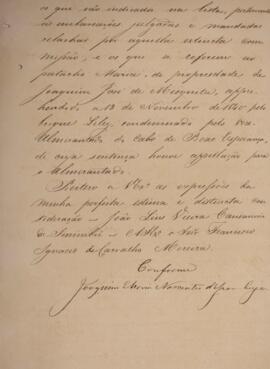 e que vão indicadas na lista, pertencentes
às embarcações julgadas e mandadas
relachar por aquella extincta com-
missão, e os que se referem ao
patacho Maria, de propriedade de
Joaquim José de Mesquita, appre-
hendido a 13 de Novembro de 1840 pelo
brigue Lily, condemnado pelo Vice
Almirantado do Cabo de Boa Esperança,
de cuja sentença houve appellação para
o Almirantado.
Reitero a V Ex.ª as expressões da
minha perfeita estima e distincta con-
sideração - João Lins Vieira Cansansão
de Sinimbú - A S Ex.ª o Snr. Francisco
Ignacio de Carvalho Moreira.
Conforme
Joaquim Maria Nascentes d'Azambuja